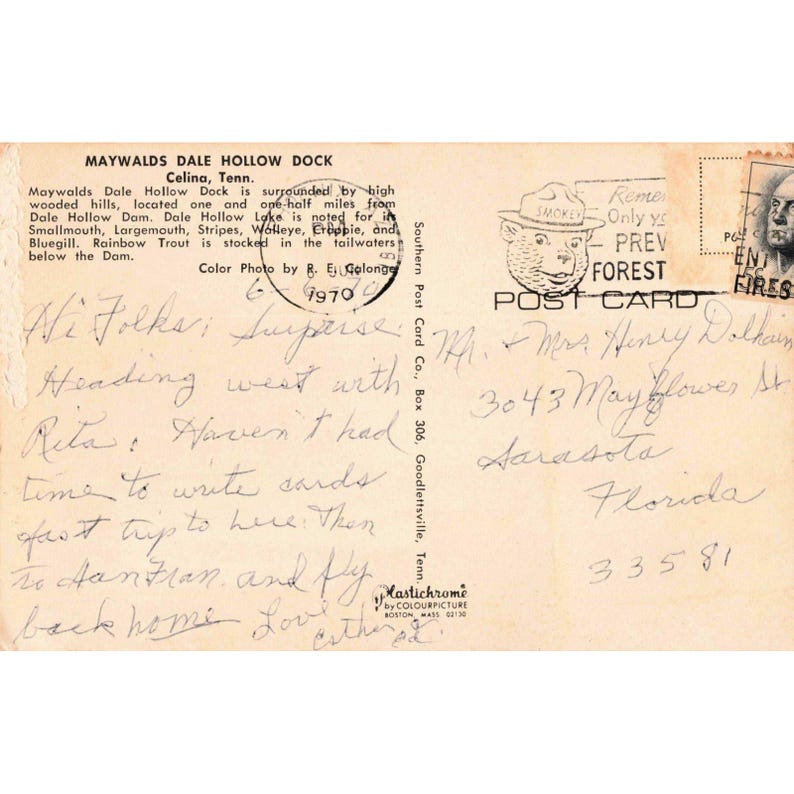 MAYWALDS DALE HOLLOW DOCK
Celina, Tenn.
Maywalds Dale Hollow Dock is surrounded by high
wooded hills, located one and one-half miles from
Dale Hollow Dam. Dale Hollow Lake is noted for its
Smallmouth, Largemouth, Stripes, Walleye, Crappie, and
Bluegill. Rainbow Trout is stocked in the tailwaters
below the Dam.
Color Photo by R. E. Calonge
6-6-70
Hi Folks: Surprise.
Heading west with
Rita. Haven't had
time to write cards
fast trip to here. Then
to San Fran. and fly
back home Love
Esther & Ed.
Southern Post Card Co., Box 306, Goodlettsville, Tenn.
Plastichrome
by COLOURPICTURE
BOSTON, MASS. 02130
PM
6 JUN
1970
SMOKEY
Only
PREV
FOREST
ENT
FIRES
5c
POST CARD
Mr. & Mrs. Henry Dolhain
3043 Mayflower St.
Sarasota
Florida
33581